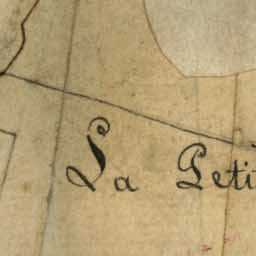 La Petit